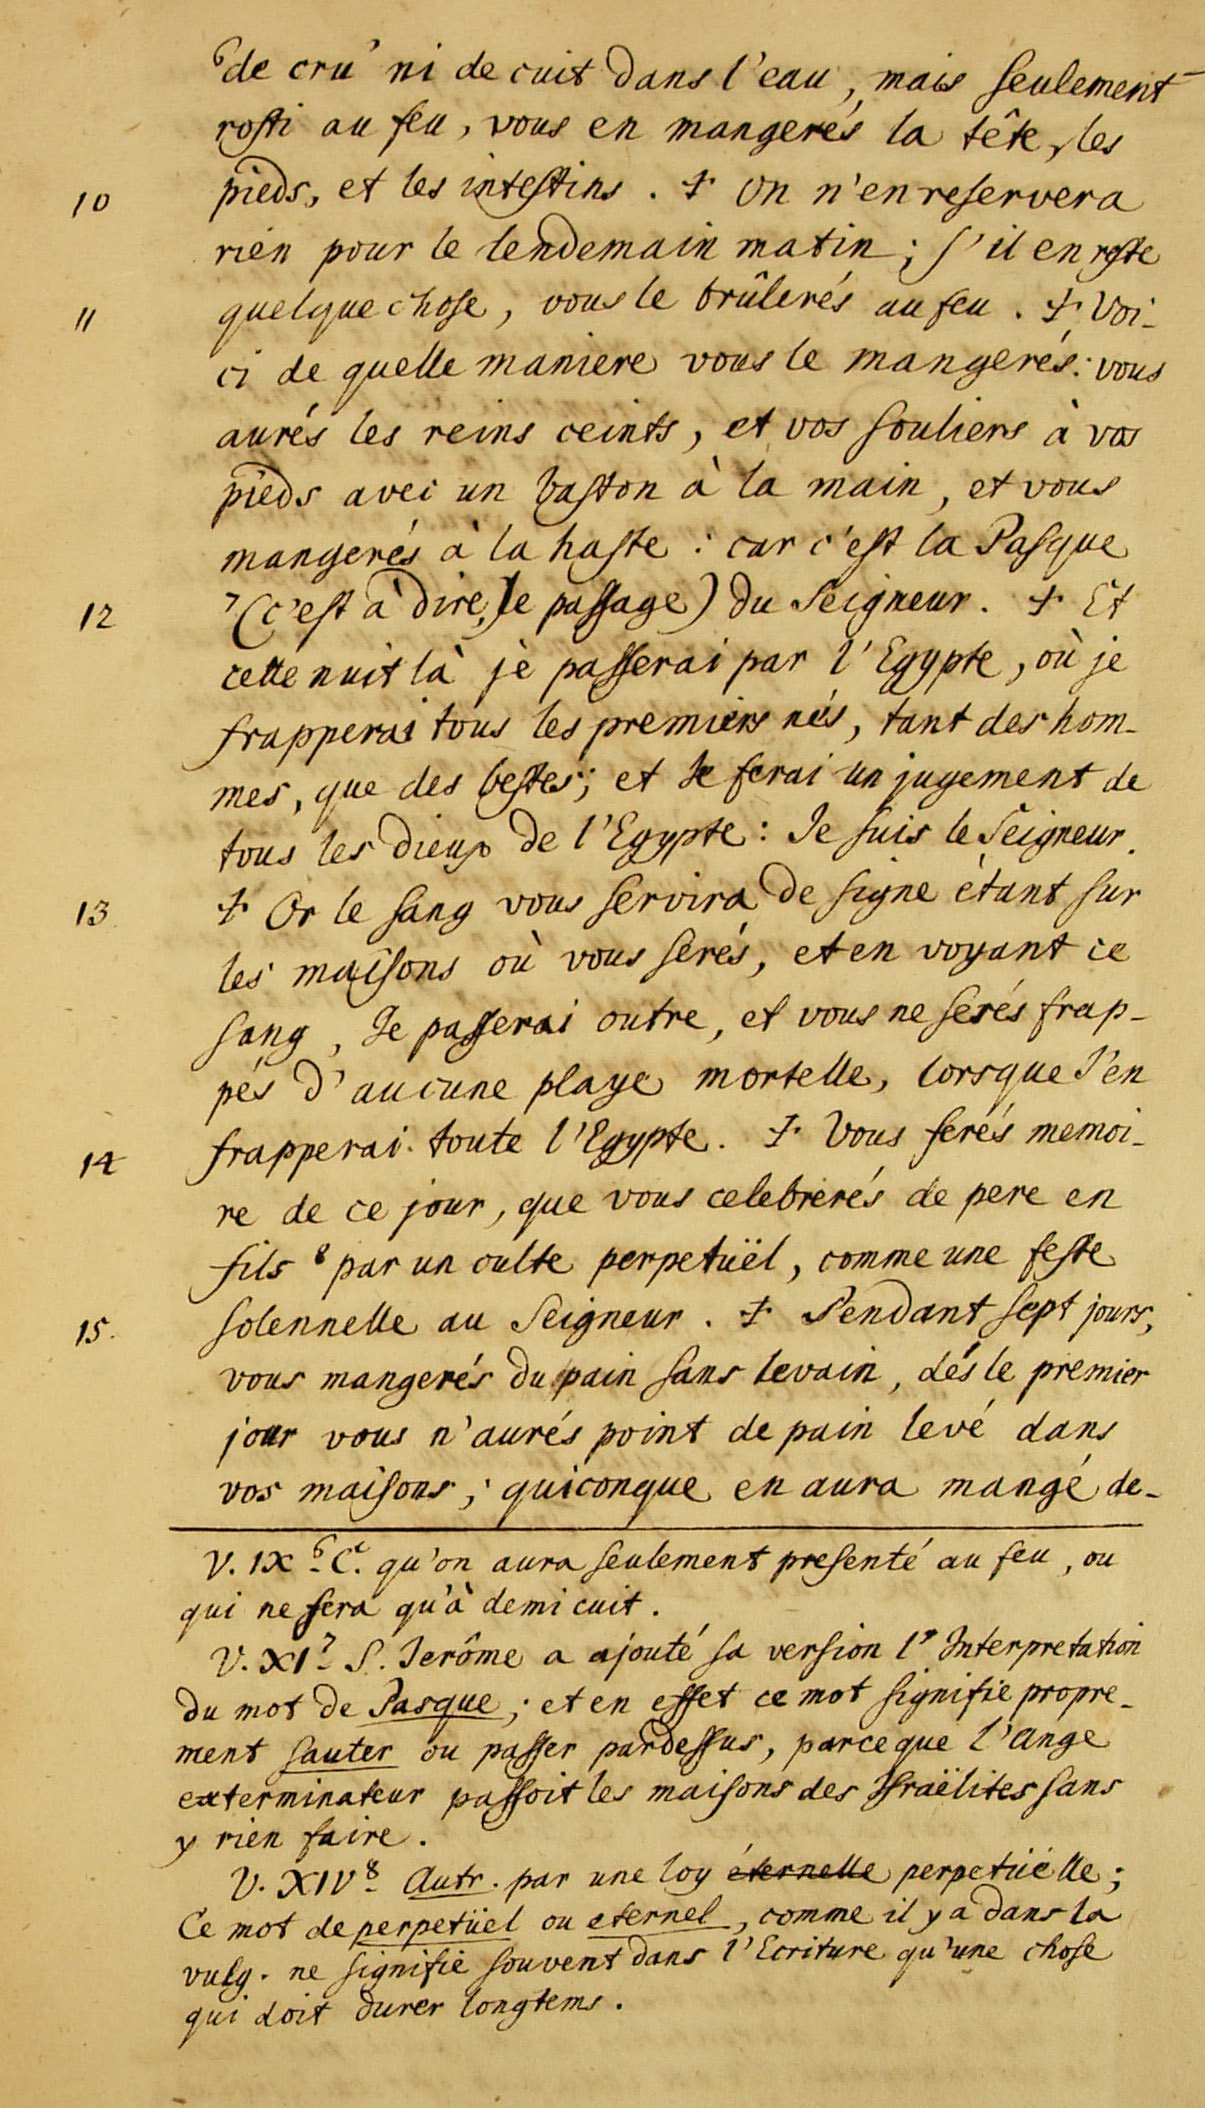 ⁶de cru’ ni de cuit dans l’eau, mais seulement
rosti au feu, vous en mangerés la tête, les
10 pieds, et les intestins. ☩ On n’en reservera
rien pour le lendemain matin; s’il en reste
11 quelque chose, vous le brûlerés au feu. ☩ Voi-
ci de quelle maniere vous le mangerés: vous
aurés les reins ceints, et vos souliers à vos
pieds avec un baston à la main, et vous
mangerés à la haste: car c’est la Pasque
12 ⁷(c’est à dire, le passage) du Seigneur. ☩ Et
cette nuit là je passerai par l’Egypte, où je
frapperai tous les premiers nés, tant des hom-
mes, que des bestes; et Je ferai un jugement de
tous les dieux de l’Egypte: Je suis le Seigneur.
13 ☩ Or le sang vous servira de signe étant sur
les maisons où vous serés, et en voyant ce
sang, Je passerai outre, et vous ne serés frap-
pés d’aucune playe mortelle, lorsque J’en
14 frapperai toute l’Egypte. ☩ Vous ferés memoi-
re de ce jour, que vous celebrerés de pere en
fils ⁸ par un culte perpetüel, comme une feste
15. solennelle au Seigneur. ☩ Pendant sept jours,
vous mangerés du pain sans levain, dés le premier
jour vous n’aurés point de pain levé dans
vos maisons; quiconque en aura mangé de-
V. IX ⁶. C’. qu’on aura seulement presenté au feu, ou
qui ne sera qu’à demi cuit.
V. XI ⁷. S. Jerôme a ajouté sa version l’Interpretation
du mot de Pasque; et en effet ce mot signifie propre-
ment sauter ou passer pardessus, parce que l’Ange
exterminateur passoit les maisons des Israëlites sans
y rien faire.
V. XIV ⁸. Autr. par une loy éternelle perpetüelle;
Ce mot de perpetüel ou eternel, comme il y a dans la
vulg. ne signifie souvent dans l’Ecriture qu’une chose
qui doit durer longtems.